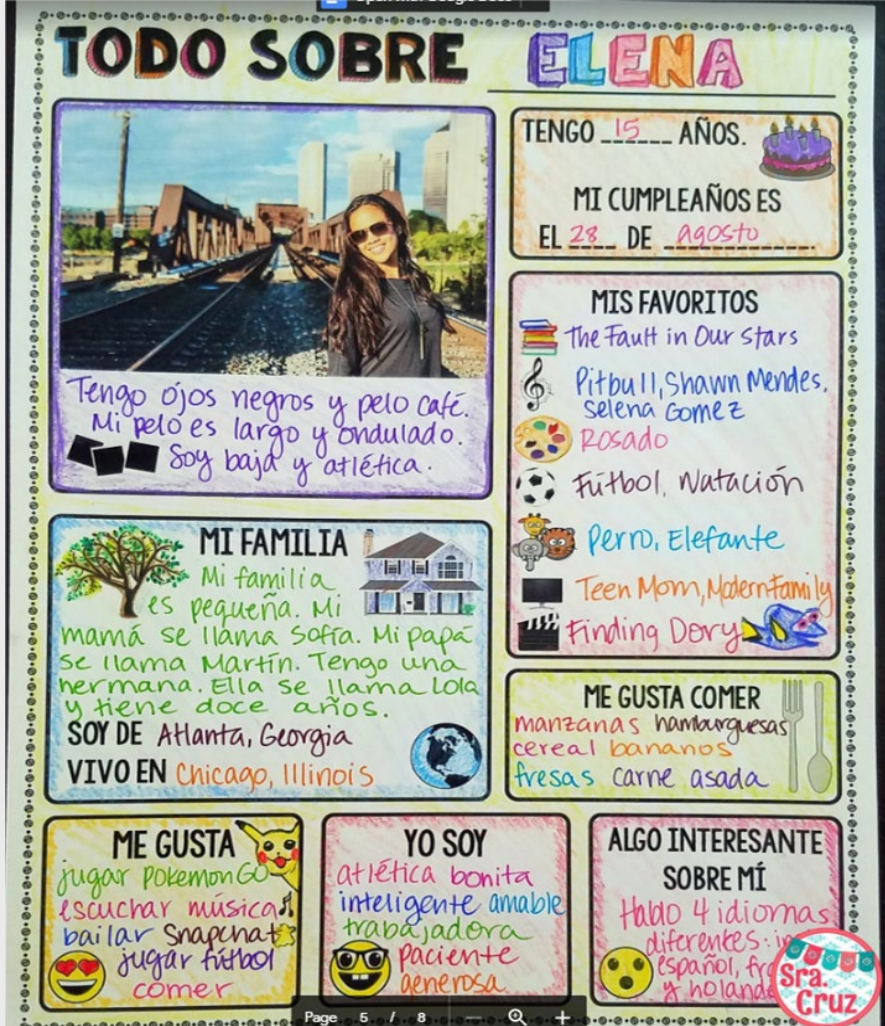 TODO SOBRE ELENA
TENGO 15 AÑOS.
MI CUMPLEAÑOS ES
EL 28 DE agosto
Tengo ojos negros y pelo café.
Mi pelo es largo y ondulado.
Soy baja y atlética.
MIS FAVORITOS
The Fault in Our Stars
Pitbull, Shawn Mendes,
Selena Gomez
Rosado
Fútbol, Natación
Perro, Elefante
Teen Mom, Modern Family
Finding Dory
MI FAMILIA
Mi familia
es pequeña. Mi
mamá se llama Sofía. Mi papá
se llama Martín. Tengo una
hermana. Ella se llama Lola
y tiene doce años.
SOY DE Atlanta, Georgia
VIVO EN Chicago, Illinois
ME GUSTA COMER
manzanas hamburguesas
cereal bananos
fresas carne asada
ME GUSTA
jugar Pokemon GO
escuchar música
bailar Snapchat
jugar fútbol
comer
YO SOY
atlética bonita
inteligente amable
trabajadora
paciente
generosa
ALGO INTERESANTE
SOBRE MÍ
Hablo 4 idiomas
diferentes:
español,
y
Sra.
Cruz
Page 5 / 8